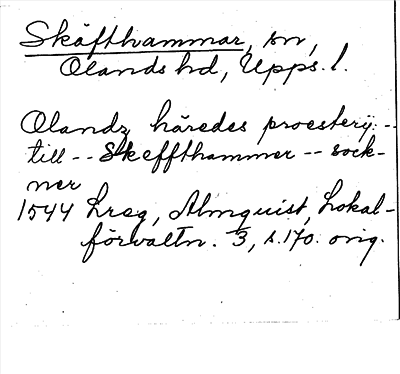 Skäfthammar, sn,
Olands hd, Upps. l.
Olandz häredes proesterij: --
till -- Skeffthammer -- sock-
ner
1544 Lreg, Almquist, Lokal-
förvaltn. 3, s. 170. orig.